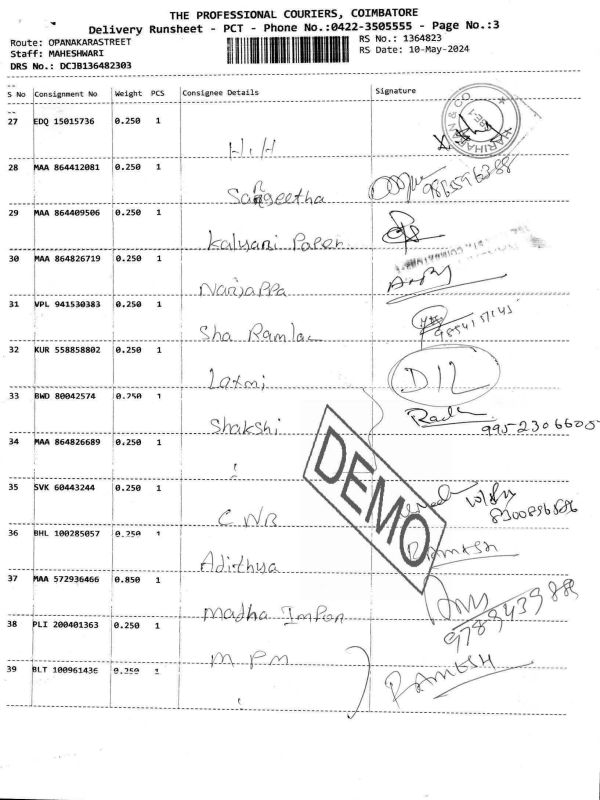 THE PROFESSIONAL COURIERS, COIMBATORE
Delivery Runsheet - PCT - Phone No.:0422-3505555 - Page No.:3
Route: OPANAKARASTREET
RS No.: 1364823
Staff: MAHESHWARI
RS Date: 10-May-2024
DRS No.: DCJB136482303
S No Consignment No Weight PCS Consignee Details Signature
27 EDQ 15015736 0.250 1
HARIHARAN & CO.
H.H
28 MAA 864412081 0.250 1
Sangeetha
29 MAA 864409506 0.250 1
Kalyani Paper
30 MAA 864826719 0.250 1
Nanjappa
31 VPL 941530383 0.250 1
Sha Ramlal
32 KUR 558858802 0.250 1
Laxmi DIL
33 BWD 80042574 0.250 1
Shakshi
9952306605
34 MAA 864826689 0.250 1
DEMO
35 SVK 60443244 0.250 1
CWB
36 BHL 100285057 0.250 1
Adithya RAMESH
37 MAA 572936466 0.850 1
Madha Impon
38 PLI 200401363 0.250 1
M P M
39 BLT 100961436 0.250 1
RAMESH